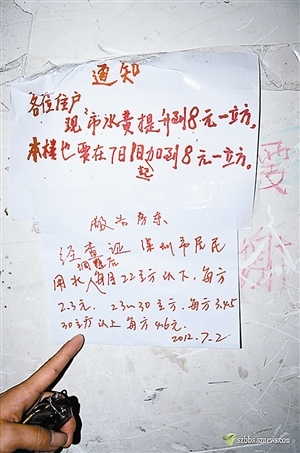 通知
各位住户
现市水费提升到8元一立方。
本楼也要在7月1日加到8元一立方。
起
敬告房东
经查证 深圳市居民
调整后
用水每月22立方以下,每方
2.3元. 23~30立方,每方3.45
30立方以上每方4.6元.
2012.7.2
szbbs.sznews.com